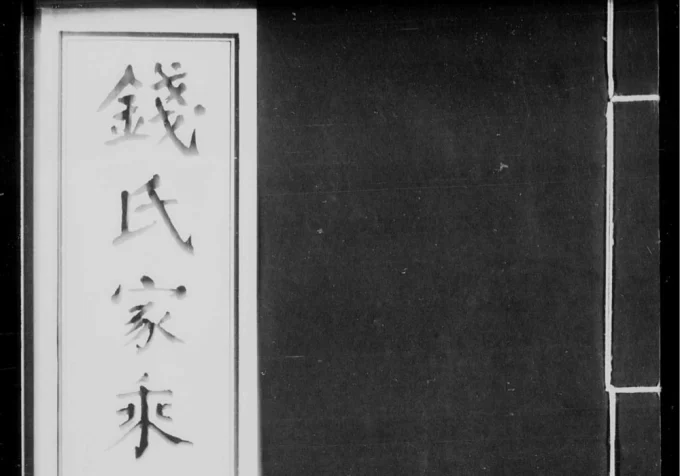 錢氏家乘